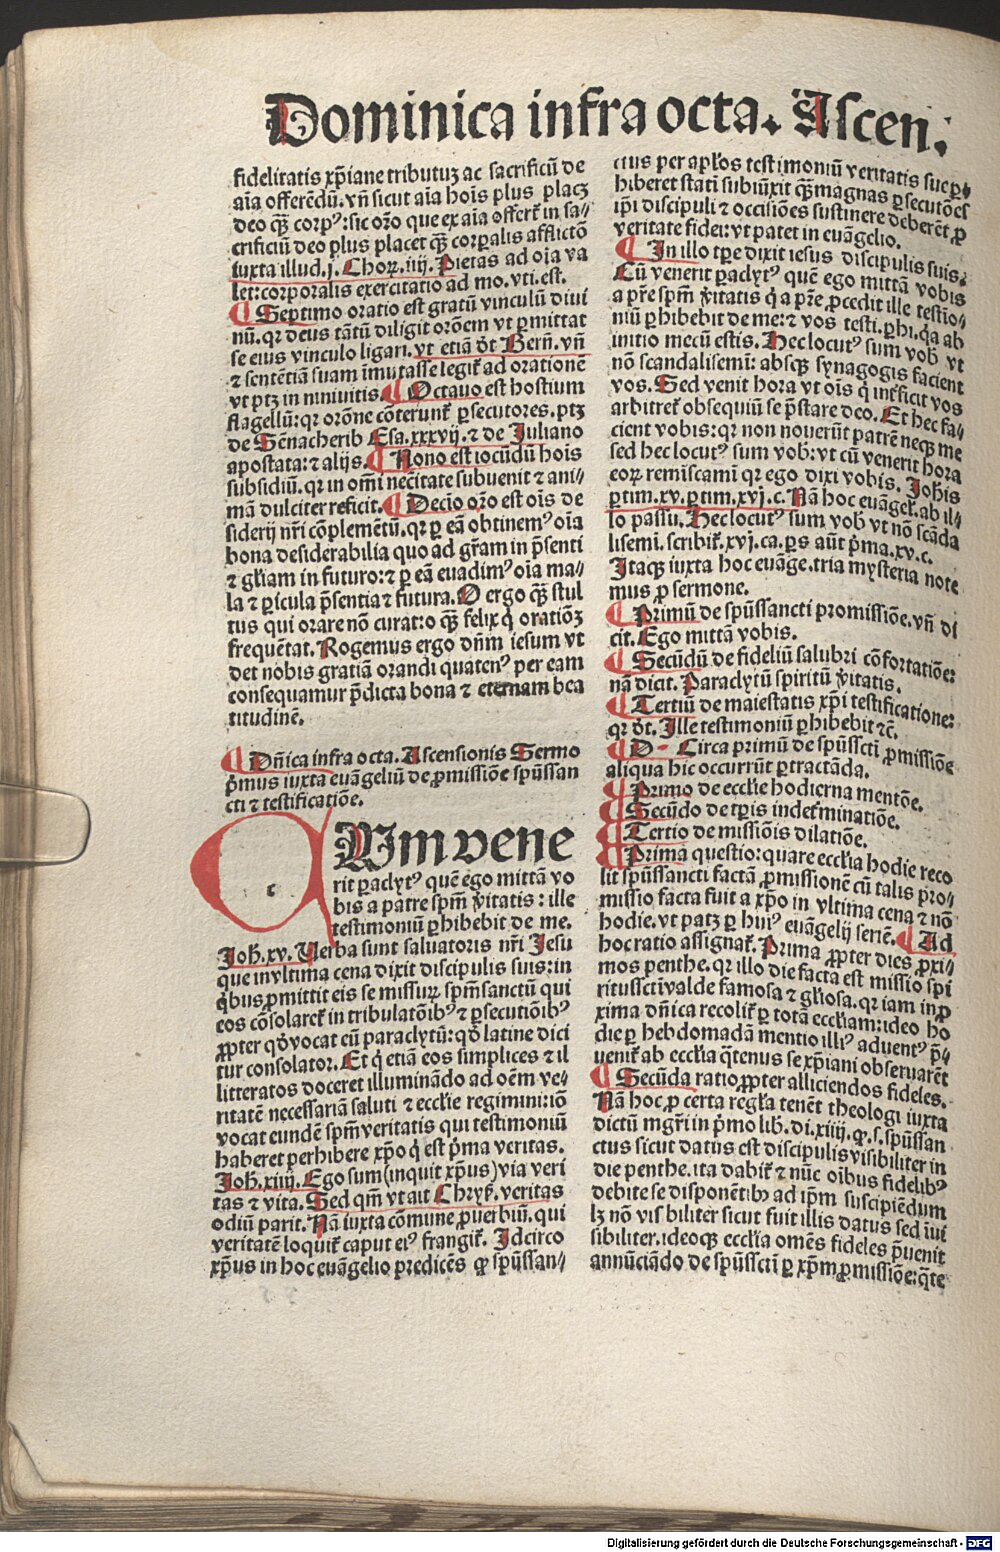 Dominica infra octa. Ascen.
fidelitatis xp̄iane tributuꝫ ac sacrificiū de
aīa offerēdū. vn̄ sicut aīa hoīs plus placꝫ
deo qꝫ̄ corpꝰ: sic orō que ex aīa offert̄ in sa/
crificiū deo plus placet qꝫ̄ corꝑalis afflictō
iuxta illud. j. Choꝝ. iiij. Pietas ad oīa va
let: corporalis exercitatio ad mo. vti. est.
¶ Septimo oratio est gratū vinculū diui
nū. qꝛ deus tātū diligit orōem vt ꝑmittat
se eius vinculo ligari. vt etiā dt̄ Bern̄. vn̄
⁊ sententiā suam īmutasse legit̄ ad orationē
vt ptꝫ in niniuitis. ¶ Octauo est hostium
flagellū: qꝛ orōne cōterunt̄ ꝑsecutores. ptꝫ
de Sennacherib Esa. xxxvij. ⁊ de Juliano
apostata: ⁊ alijs. ¶ Nono est iocūdū hoīs
subsidiū. qꝛ in om̄i necītate subuenit ⁊ ani/
mā dulciter reficit. ¶ Decīo orō est oīs de
siderij nr̄i cōplementū. qꝛ ꝑ eā obtinemꝰ oīa
bona desiderabilia quo ad gr̄am in p̄senti
⁊ gl̄iam in futuro: ⁊ ꝑ eā euadimꝰ oīa ma/
la ⁊ ꝑicula p̄sentia ⁊ futura. O ergo qꝫ̄ stul
tus qui orare nō curat: o qꝫ̄ felix q̇ oratiōꝫ
frequētat. Rogemus ergo dn̄m iesum vt
det nobis gratiā orandi quatenꝰ per eam
consequamur p̄dicta bona ⁊ eternam bea
titudinē.
¶ Dn̄ica infra octa. Ascensionis Sermo
p̄mus iuxta euāgeliū de ꝓmissiōe spūssan
cti ⁊ testificatiōe.
c
Um vene
rit ꝑaclytꝰ quē ego mittā vo
bis a patre spm̄ v̇itatis: ille
testimoniū ꝑhibebit de me.
Joh. xv. Verba sunt saluatoris nr̄i Jesu
que in vltima cena dixit discipulis suis: in
q̇bus ꝓmittit eis se missuꝝ spm̄ sanctū qui
eos cōsolaret̄ in tribulatōibꝰ ⁊ ꝑsecutiōibꝰ
ꝓpter qd̄ vocat eū paraclytū: qd̄ latine dici
tur consolator. Et q̇ etiā eos simplices ⁊ il
litteratos doceret illuminādo ad oēm ve/
ritatē necessariā saluti ⁊ eccl̄ie regimini: iō
vocat eundē spm̄ veritatis qui testimoniū
haberet perhibere xp̄o q̇ est p̄ma veritas.
Joh. xiiij. Ego sum (inquit xp̄us) via veri
tas ⁊ vita. Sed qm̄ vt ait Chrys̄. veritas
odiū parit. Nā iuxta cōmune ꝓuerbiū. qui
veritatē loquit̄ caput eiꝰ frangit̄. Idcirco
xp̄us in hoc euāgelio predicēs ꝙ spūssan/
ctus per apl̄os testimoniū veritatis sue ꝑ/
hiberet statī subiūxit qꝫ̄ magnas ꝑsecutōes
ip̄i discipuli ⁊ occisiōes sustinere deberēt ꝓ
veritate fidei: vt patet in euāgelio.
¶ In illo tꝑe dixit iesus discipulis suis.
Cū venerit ꝑaclytꝰ quē ego mittā vobis
a pr̄e spm̄ v̇itatis q̇ a pr̄e ꝓcedit ille testio/
niū ꝑhibebit de me: ⁊ vos testi. ꝑhi. qꝛ ab
initio mecū estis. Hec locutꝰ sum vob̄ vt
nō scandalisemī: absqꝫ synagogis facient
vos. Sed venit hora vt oīs q̇ int̄ficit vos
arbitret̄ obsequiū se p̄stare deo. Et hec fa/
cient vobis: qꝛ non nouerūt patrē neqꝫ me
sed hec locutꝰ sum vob̄: vt cū venerit hora
eoꝝ remiscamī qꝛ ego dixi vobis. Johīs
ꝑtim. xv. ꝑtim. xvj. c. Nā hoc euāgel̄. ab il/
lo passu. Hec locutꝰ sum vob̄ vt nō scāda
lisemi. scribit̄. xvj. ca. ꝑs aūt p̄ma. xv. c.
Itaqꝫ iuxta hoc euāge. tria mysteria note
mus ꝓ sermone.
¶ Primū de spūssancti promissiōe. vn̄ di
cit. Ego mittā vobis.
¶ Secūdū de fideliū salubri cōfortatiōe:
nā dicit. Paraclytū spiritū v̇itatis.
¶ Tertiū de maiestatis xp̄i testificatione:
qꝛ dt̄. Ille testimoniū ꝑhibebit ⁊c̄.
¶ D- Circa primū de spūsscti ꝓmissiōe
aliqua hic occurrūt ꝑtractāda.
¶ Primo de eccl̄ie hodierna mentōe.
¶ Secūdo de tꝑis indet̄minatiōe.
¶ Tertio de missiōis dilatiōe.
¶ Prima questio: quare eccl̄ia hodie reco
lit spūssancti factā ꝓmissionē cū talis pro/
missio facta fuit a xp̄o in vltima cena ⁊ nō
hodie. vt patꝫ ꝑ huiꝰ euāgelij seriē. ¶ Ad
hoc ratio assignat̄. Prima ꝓpter dies ꝓxi/
mos penthe. qꝛ illo die facta est missio spi
ritusscti valde famosa ⁊ gl̄iosa. qꝛ iam in ꝓ
xima dn̄ica recolit̄ ꝑ totā eccl̄iam: ideo ho
die ꝑ hebdomadā mentio illiꝰ aduentꝰ p̄/
uenit̄ ab eccl̄ia q̄tenus se xp̄iani obseruarēt
¶ Secūda ratio ꝓpter alliciendos fideles.
Nā hoc ꝓ certa regl̄a tenēt theologi iuxta
dictū mgr̄i in p̄mo lib. di. xiiij. ꝙ. s. spūssan
ctus sicut datus est discipulis visibiliter in
die penthe. ita dabit̄ ⁊ nūc oībus fidelibꝰ
debite se disponētibꝰ ad ip̄m suscipiēdum
lꝫ nō visibiliter sicut fuit illis datus sed īui
sibiliter. ideoqꝫ eccl̄ia omēs fideles p̄uenit
annūciādo de spūsscti ꝑ xp̄m ꝓmissiōe: q̄te
Digitalisierung gefördert durch die Deutsche Forschungsgemeinschaft - DFG